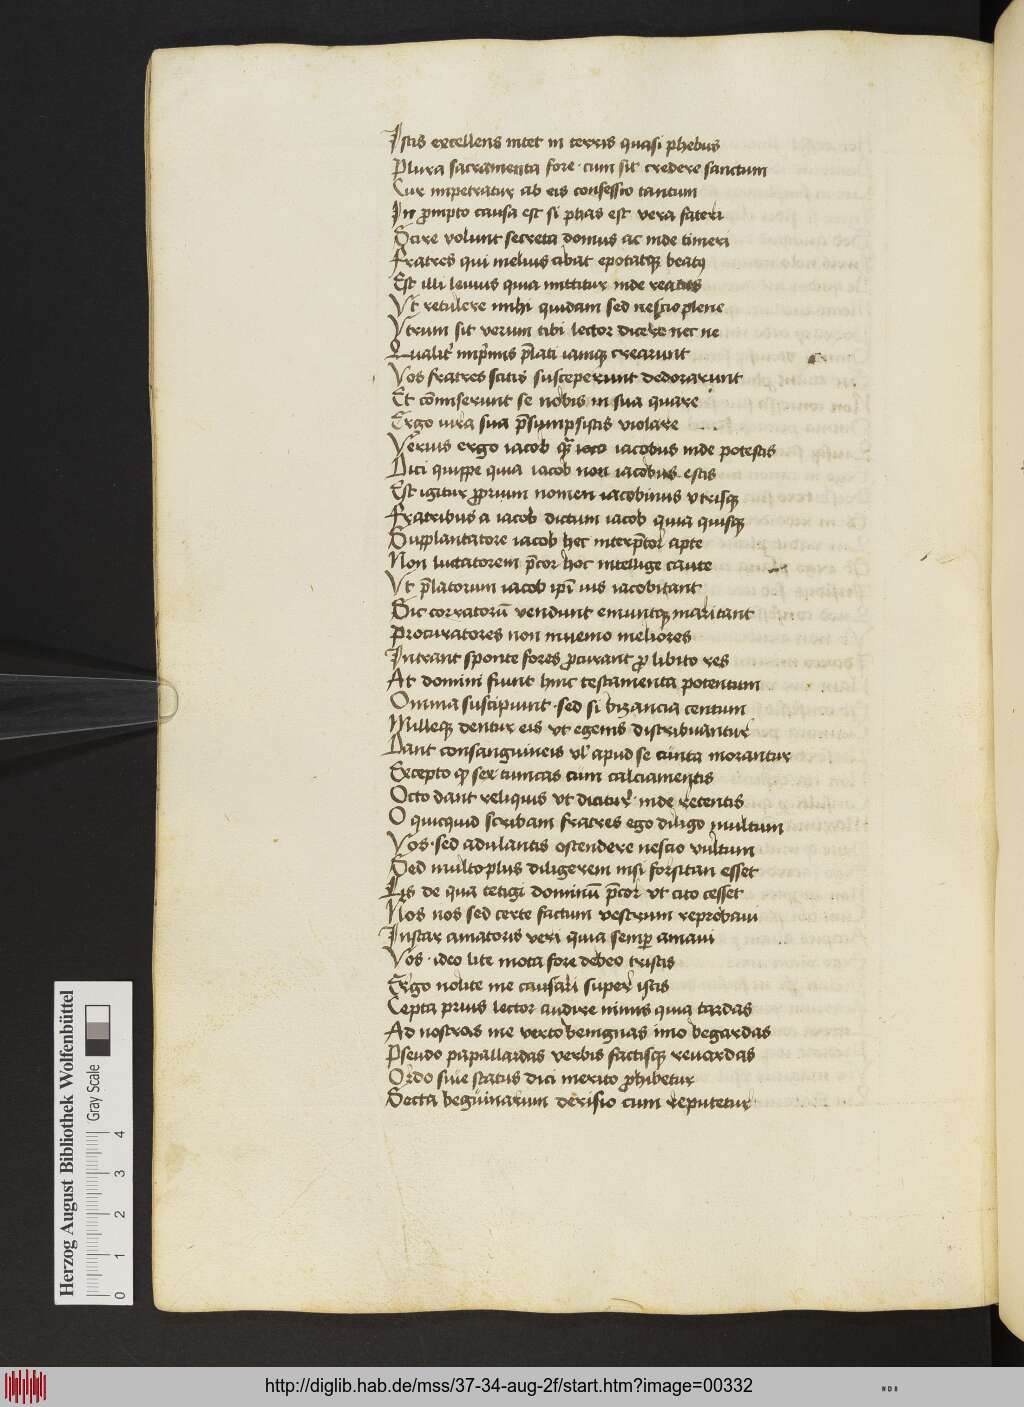 Istis excellens nitet in terris quasi phebus
Plura sacramenta fore · cum sit credere sanctum
Cur impetratur ab eis confessio tantum
In ꝓmpto causa est si phas est vera fateri
Scire volunt secreta domus ac inde timeri
Fratres qui melius cibat epotatqꝫ beatꝰ
Est illi leuius quia mittitur inde reatus
Vt retulere mihi quidam sed nescio plene
Vtrum sit verum tibi lector dicere nec ne
Qualit̓ imp̓mis p̄lati iamqꝫ crearunt
Vos fratres scitis susceperunt dedorarunt
Et cōmiserunt se nobis in sua quare
Ergo iura sua p̄sumpsistis violare
Verius ergo iacob qꝫ̄ ioco iacobus inde potestis
Dici quippe quia iacob non iacobus estis
Est igitur ꝓprium nomen iacobinus vtrisqꝫ
Fratribus a iacob dictum iacob quia quisqꝫ
Supplantatore iacob hec interp̄tor apte
Non luctatorem p̄cor hoc intellige caute
Vt p̄latorum iacob ip̄i ius iacobitant
Sic corratorū vendunt emuntqꝫ maritant
Procuratores non inuenio meliores
Intrant sponte fores ꝓcurant ꝓ libito res
At domini fiunt hinc testamenta potentum
Omnia suscipiunt · sed si bizancia centum
Milleqꝫ dentur eis vt egenis distribuantur
Dant consanguineis vl̓ apud se cūnta morantur
Excepto ꝙ sex tunicas cum calciamentis
Octo dant reliquis vt dicitur · inde retentis
O quicquid scribam fratres ego diligo multum
Vos · sed adulantis ostendere nescio vultum
Sed multo plus diligerem nisi forsitan esset
Lis de qua tetigi dominū p̄cor vt cito cesset
Nos nos sed certe factum vestrum reprobaui
Instar amatoris veri quia semꝑ amaui
Vos · ideo lite mota fore debeo tristis
Ergo nolite me causari super istis
Cepta prius lector audire nimis quia tardas
Ad nostras me verto beniguas imo begardas
Pseudo papallardas verbis factisqꝫ reuardas
Ordo siue status dici merito ꝓhibetur
Secta beguinarum derisio cum reputetur
Herzog August Bibliothek Wolfenbüttel
Gray Scale
0 1 2 3 4
http://diglib.hab.de/mss/37-34-aug-2f/start.htm?image=00332